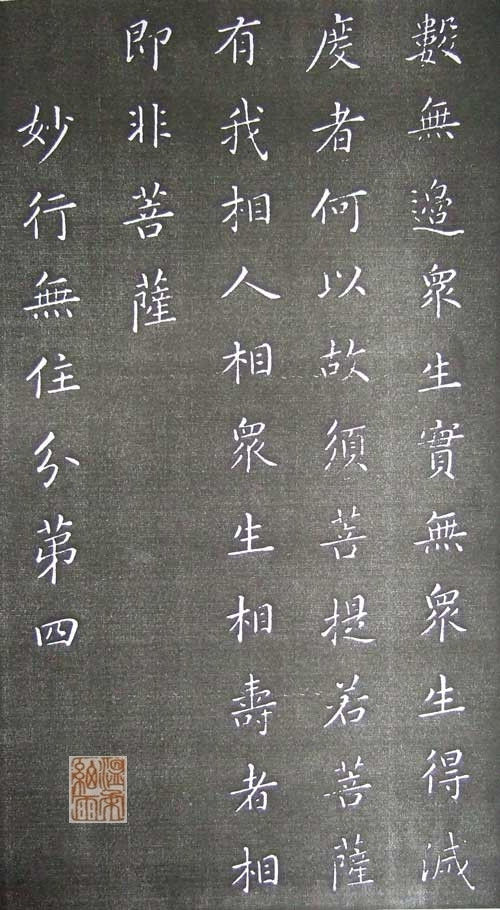 數無邊眾生實無眾生得滅
度者何以故須菩提若菩薩
有我相人相眾生相壽者相
即非菩薩
妙行無住分第四